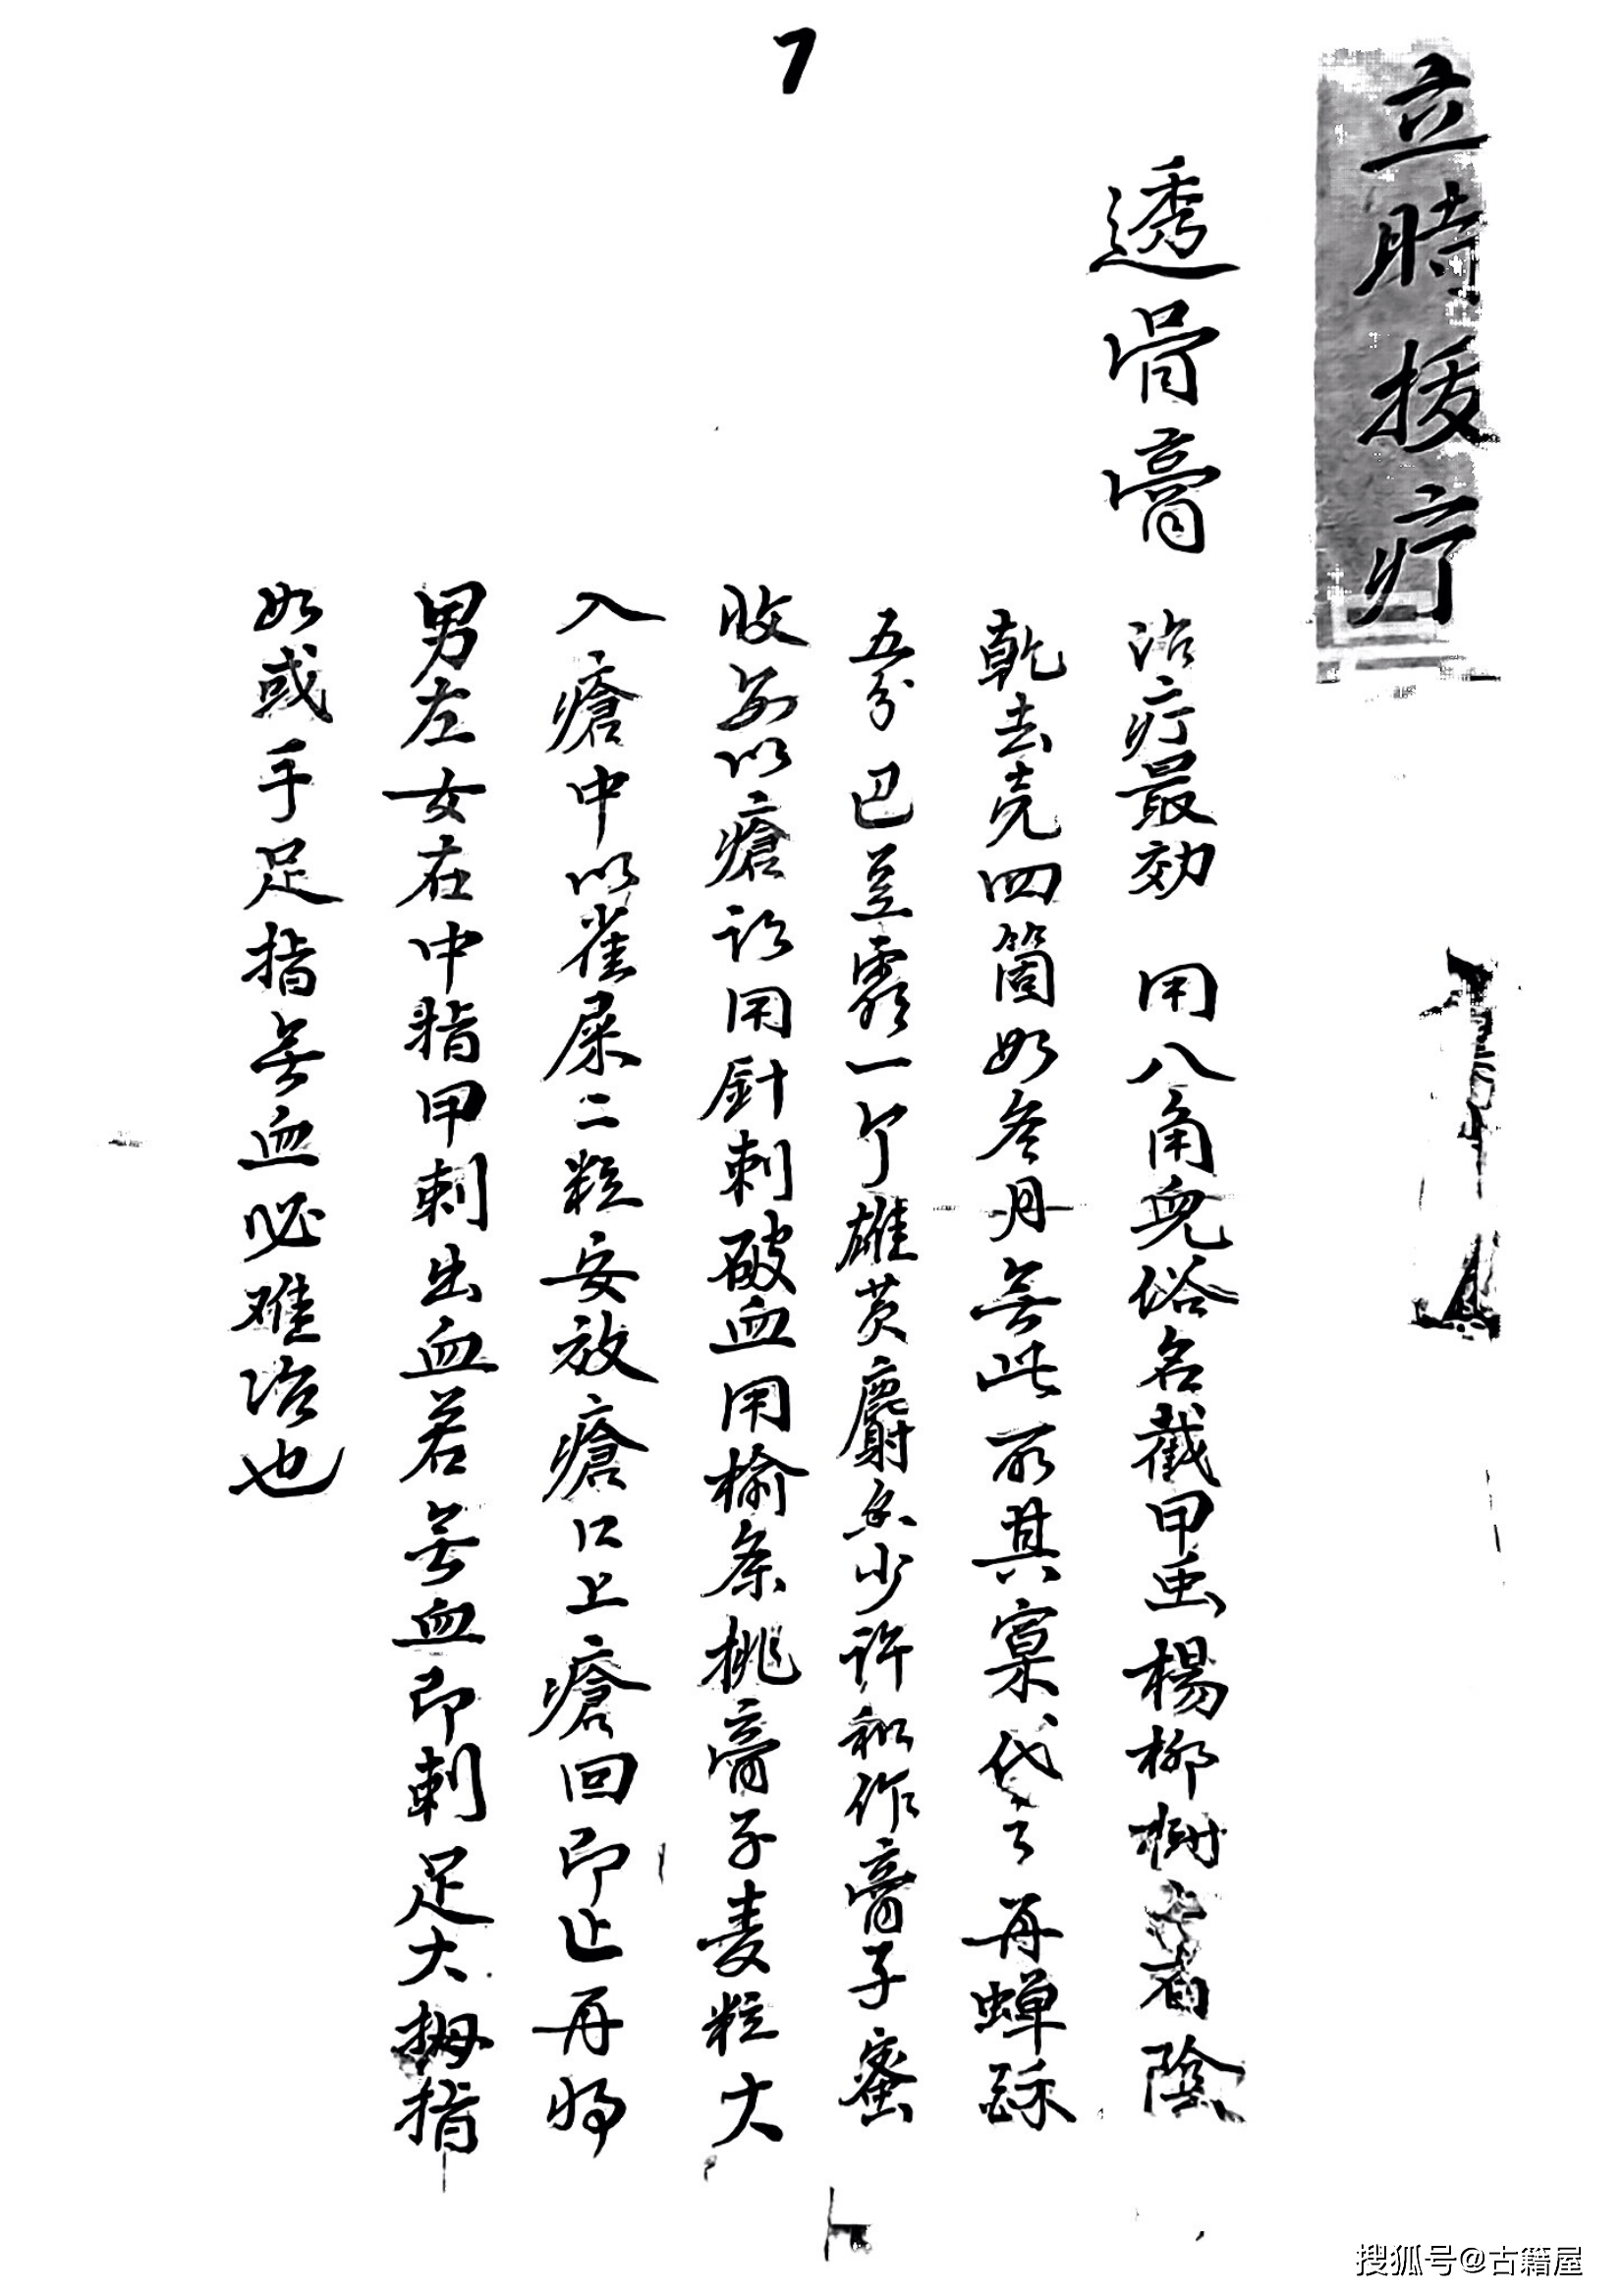 7
立時拔疔
透骨膏
治疔最効 用八角兒俗名截甲虫楊柳樹上有陰
乾去壳四箇如冬月無此所其窠代之再蟬酥
五分巴豆霜一个雄黄麝香少許和作膏子蜜
收如以瘡初用針刺破血用榆条挑膏子麦粒大
入瘡中以雀屎二粒安放瘡口上瘡回即止再將
男左女右中指甲刺出血若無血即刺足大拇指
如或手足指無血必难治也
搜狐号@古籍屋